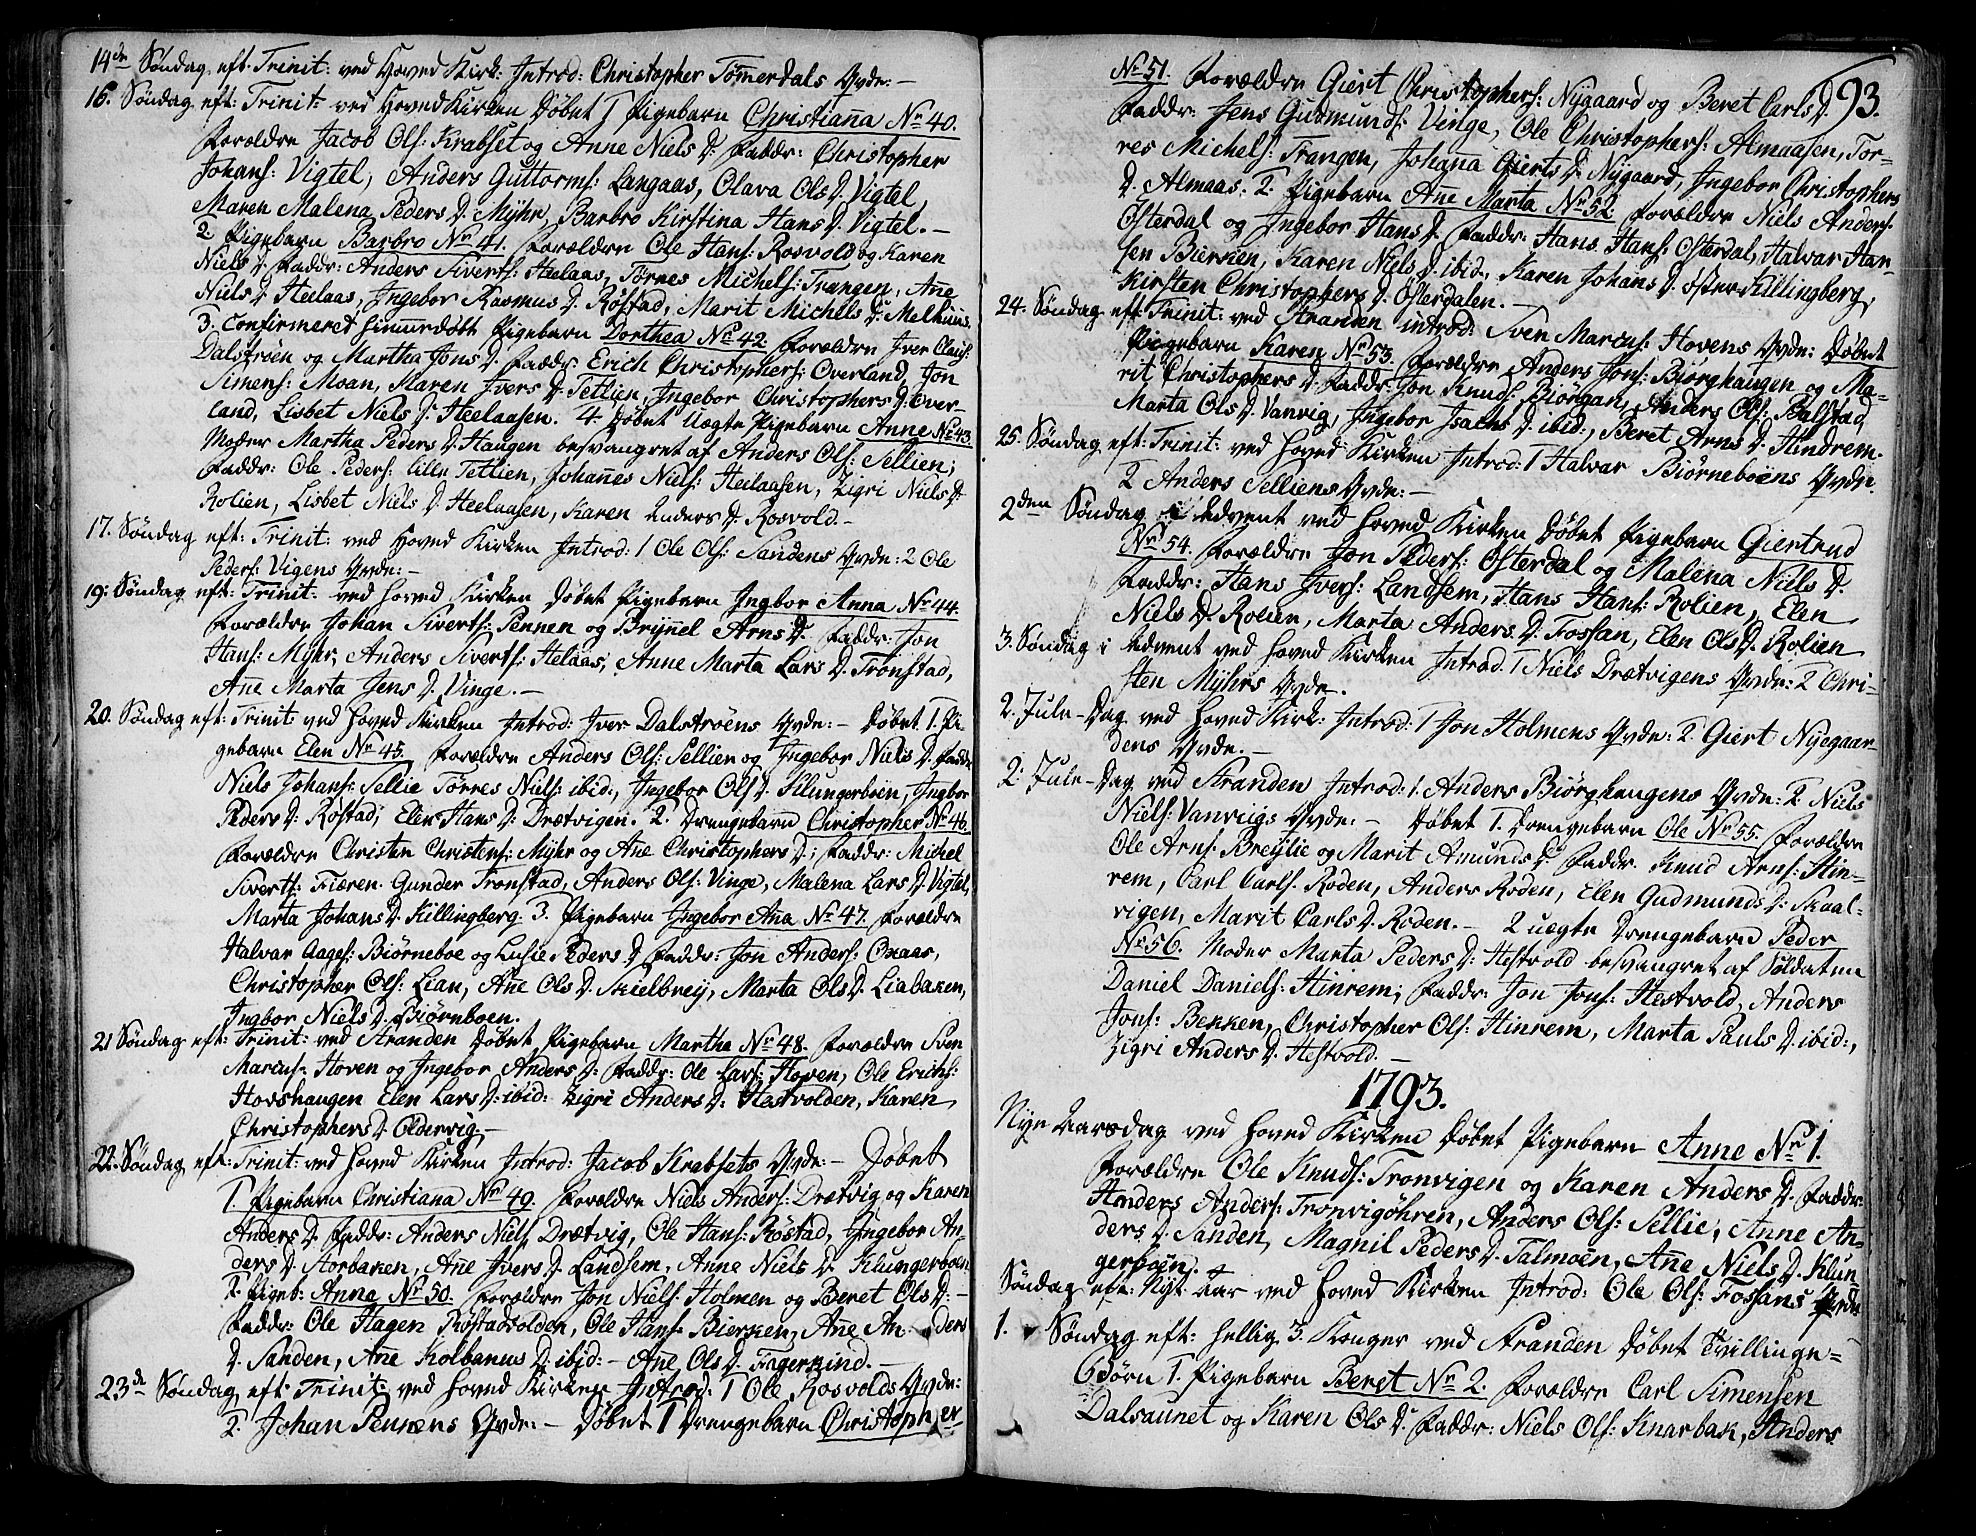 14de Søndag eft: Trinit: ved Hoved Kirk: Introd: Christopher Tømmerdals Qvde: –
16. Søndag eft: Trinit: ved Hoved Kirken Døbet 1 Pigebarn Christiana No 40.
Forældre Jacob Ols: Krabset og Anne Niels D: Faddr: Christopher
Johans: Vigtel, Anders Guttorms: Langaas, Olava Ols D. Vigtel,
Maren Malena Peders D: Myhr, Barbro Kirstina Hans D: Vigtel. –
2 Pigebarn Barbro No 41. Forældre Ole Hans: Rosvold og Karen
Niels D. Faddr: Anders Siverts: Heelaas, Tørres Michels: Trangen, Ane
Niels D. Heelaas, Ingebor Rasmus D. Røstad, Marit Michels D: Melhuus.
3. Confirmeret hiemmedøbt Pigebarn Dorthea No 42 Forældre Iver Claus:
Dalstrøen og Martha Jons D. Faddr: Erich Christophers: Overland, Jon
Simens: Moan, Maren Ivers D. Tetlien, Ingebor Christophers D. Over-
land, Lisbet Niels D. Heelaasen. 4. Døbet Uægte Pigebarn Anne No 43.
Moder Martha Peders D. Haugen besvangret af Anders Ols: Sellien;
Faddr: Ole Peders: lille Tetlien, Johanes Niels: Heilaasen, Zigri Niels D.
Rolien, Lisbet Niels D. Heelaasen, Karen Anders D. Rosvold. –
17. Søndag eft: Trinit: ved Hoved Kirken Introd: 1 Ole Ols: Sandens Qvde: 2 Ole
Peders: Vigens Qvde: –
19: Søndag eft: Trinit: ved Hoved Kirken Døbet Pigebarn Ingbor Anna No 44.
Forældre Johan Siverts: Pennen og Brynnel Arns D. Faddr: Jon
Hans: Myhr, Anders Siverts: Helaas, Anne Marta Lars D. Tronstad,
Ane Marta Jens D. Vinge. –
20. Søndag eft: Trinit: ved Hoved Kirken Introd: Iver Dalstrøens Qvde: – Døbet 1. Pi-
gebarn Elen No 45. Forældre Anders Ols: Sellien og Ingebor Niels D. Faddr:
Niels Johans: Sellie Tørres Niels: ibid:, Ingebor Ols D. Klungerboen, Ingbor
Peders D. Røstad, Elen Hans D: Drætvigen. 2. Drengebarn Christopher No 46.
Forældre Christen Christens: Myhr og Ane Christophers D; Faddr: Michel
Siverts: Fiæren. Gunder Tronstad, Anders Ols: Vinge, Malena Lars D. Vigtel,
Marta Johans D. Killingberg. 3. Pigebarn Ingebor Ana No 47. Forældre
Halvar Aages: Biørneboe og Lusie Peders D. Faddr: Jon Anders: Oxaas,
Christopher Ols: Lian, Ane Ols D. Skielbrey, Marta Ols D. Liabaken,
Ingbor Niels D. Biørnboen.
21 Søndag eft: Trinit: ved Stranden Døbet Pigebarn Martha No 48. Forældre Sven
Marcus: Hoven og Ingebor Anders D: Faddr: Ole Lars: Hoven, Ole Erichs:
Hovshaugen Elen Lars D. ibid: Zigri Anders D: Hestvolden, Karen
Christophers D. Oldervig. –
22. Søndag eft: Trinit: ved Hoved Kirken Introd: Jacob Krabsets Qvde: – Døbet
1. Pigebarn Christiana No 49. Forældre Niels Anders: Drætvig og Karen
Anders D. Faddr: Anders Niels: Drætvig, Ole Hans: Røstad, Ingebor An-
ders D. Storbaken, Ane Ivers D. Landsem, Anne Niels D. Klungerboen
2. Pigeb: Anna No 50. Forældre Jon Niels: Holmen og Beret Ols D: –
Faddr: Ole Hagen Røstadvolden, Ole Hans: Bierken, Ane Anders
D. Sanden, Ane Kolbanus D. ibid: – Ane Ols D. Fagerkind. –
23de Søndag eft: Trinit: ved Hoved Kirken Introd: 1 Ole Rosvolds Qvde:
2. Johan Pennens Qvde: – Døbet 1 Drengebarn Christopher
93.
No 51. Forældre Giert Christophers: Nygaard og Beret Carls D.
Faddr: Jens Gudmunds: Vinge, Ole Christophers: Almaasen, Tor-
res Michels: Trangen, Johana Gierts D. Nygaard, Ingebor Christophers
D. Almaas. 2. Pigebarn Ane Marta No 52. Forældre Niels Anders:
Østerdal og Ingebor Hans D. Faddr: Hans Hans: Østerdal, Halvar Han-
sen Bierken, Karen Niels D. ibid:, Karen Johans D. østre Killingberg,
Kirsten Christophers D. Østerdalen. –
24. Søndag eft: Trinit: ved Stranden introd: Sven Marcus: Hovens Qvde: Døbet
Pigebarn Karen No 53. Forældre Anders Jons: Biørghaugen og Ma-
rit Christophers D. Faddr: Jon Knuds: Biørgan, Anders Ols: Balstad,
Marta Ols D. Vanvig, Ingebor Isachs D. ibid:, Beret Arns D. Hindrem.
25. Søndag eft: Trinit: ved Hoved Kirken Introd: 1 Halvar Biørneboens Qvde.
2 Anders Selliens Qvde: –
2den Søndag i Advent ved Hoved Kirken Døbet Pigebarn Giertrud
No 54. Forældre Jon Peders: Østerdal og Malena Niels D.
Faddr: Hans Ivers: Landsem, Hans Hans: Rolien, Elen
Niels D. Rolien, Marta Anders D. Fossan, Elen Ols D. Rolien
3. Søndag i Advent ved Hoved Kirken Introd. 1 Niels Drætvigens Qvde: 2 Chri-
sten Myhrs Qvde.
2. Jule-Dag ved Hoved Kirk: Introd: 1 Jon Holmens Qvde: 2 Giert Nyegaar-
dens Qvde. –
2: Jule-Dag ved Stranden Introd: 1. Anders Biørghaugens Qvde: 2. Niels
Niels: Vanviigs Qvde: – Døbet 1. Drengebarn Ole No 55. Forældre
Ole Arns: Breylie og Marit Amunds D. Faddr. Knud Arns: Hin-
rem, Carl Carls: Roden, Anders Roden, Elen Gudmunds D: Skaal-
vigen, Marit Carls D. Roden. – 2 uægte Drengebarn Peder
No 56. Moder Marta Peders D: Hestvold besvangret af Soldaten
Daniel Daniels: Hinrem; Faddr: Jon Jons: Hestvold, Anders
Jons: Bekken, Christopher Ols: Hinrem, Marta Pauls D. ibid:,
Zigri Anders D. Hestvold. –
1793.
Nye Aarsdag ved Hoved Kirken Døbet Pigebarn Anne No 1.
Forældre Ole Knuds: Tronvigen og Karen Anders D. Faddr:
Anders Anders: Tronvigøhren, Anders Ols: Sellie, Anne An-
ders D. Sanden, Magnil Peders D. Talmoen, Ane Niels D. Klun-
gerboen.
Søndag eft: Nyt Aar ved Hoved Kirken Introd: Ole Ols: Fossans Qvde
1. Søndag eft: Hellig 3. Konger ved Stranden Døbet Tvillinge-
Børn 1. Pigebarn Beret No 2. Forældre Carl Simensen
Dalsaunet og Karen Ols D: Faddr: Niels Ols: Knarbak, Anders